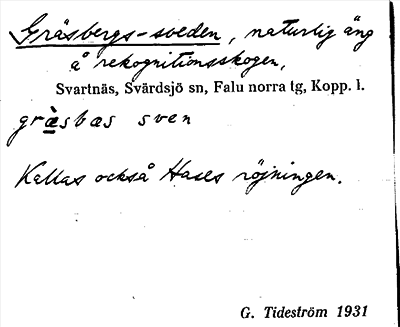 Gräsbergs-sveden, naturlig äng
å rekognitionsskogen,
Svartnäs, Svärdsjö sn, Falu norra tg, Kopp. l.
græ̀sbæs sven
Kallas också Hases röjningen.
G. Tideström 1931